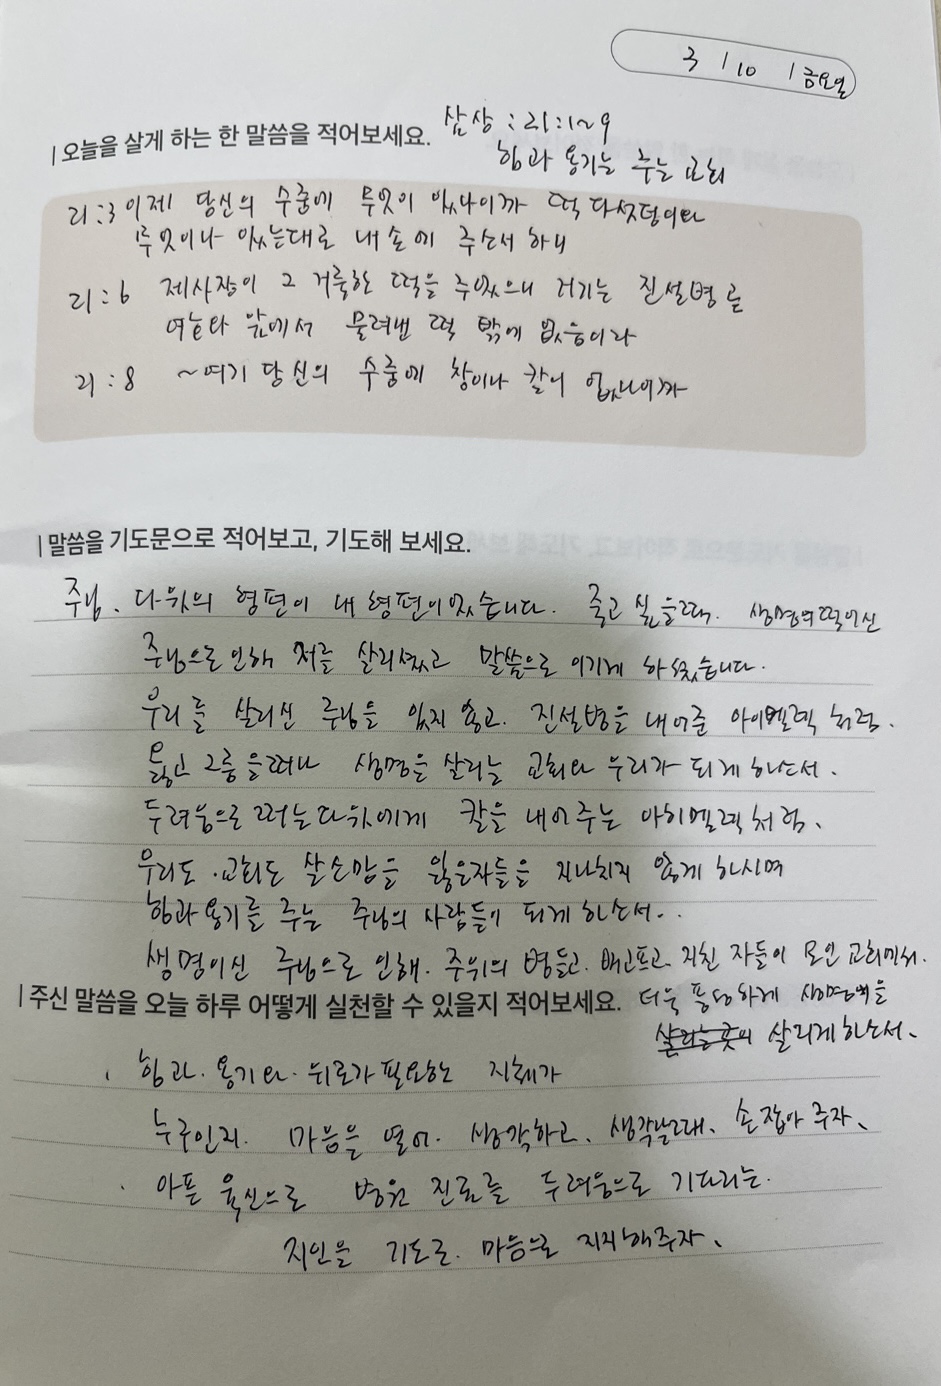 3 / 10 / 금요일
| 오늘을 살게 하는 한 말씀을 적어보세요. 삼상 : 21 : 1~9
힘과 용기는 주는 교회
21 : 3 이제 당신의 수중에 무엇이 있나이까 떡 다섯덩이나
무엇이나 있는대로 내 손에 주소서 하니
21 : 6 제사장이 그 거룩한 떡을 주었으니 거기는 진설병 곧
여호와 앞에서 물려낸 떡 밖에 없음이라
21 : 8 ~여기 당신의 수중에 창이나 칼이 없나이까
| 말씀을 기도문으로 적어보고, 기도해 보세요.
주님. 다윗의 형편이 내 형편이었습니다. 죽고 싶을때. 생명의떡이신
주님으로 인해 저를 살리셨고 말씀으로 이기게 하셨습니다.
우리를 살리신 주님을 잊지 않고. 진설병을 내어준 아히멜렉 처럼.
돕고 그들을떠나 생명을 살리는 교회와 우리가 되게 하소서.
두려움으로 떠는다윗에게 칼을 내어주는 아히멜렉처럼.
우리도. 교회도 살소망을 잃은자들을 지나치지 않게 하시며
힘과 용기를 주는 주님의 사람들이 되게 하소서..
생명이신 주님으로 인해. 주위의 병들고. 배고프고. 지친 자들이 모인 교회
| 주신 말씀을 오늘 하루 어떻게 실천할 수 있을지 적어보세요. 더욱 풍성하게 생명을
살리는곳이 살리게하소서.
. 힘과. 용기와. 위로가필요한 지체가
누구인지. 마음을 열어. 생각하고. 생각날때. 손 잡아 주자.
. 아픈 육신으로 병원 진료를 두려움으로 기다리는.
지인을 기도로. 마음으로 지지해주자.